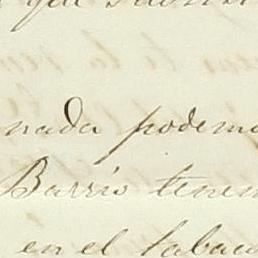 que
nada podemo
Barrio tenem
en el tabaco